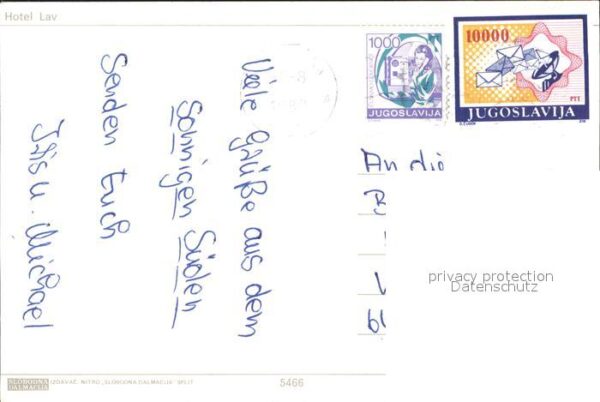 Hotel Lav
1000
JUGOSLAVIJA
10000
PTT
JUGOSLAVIJA
Viele Grüße aus dem
Sonnigen Süden
Senden Euch
Iris u. Michael
An die
privacy protection
Datenschutz
SLOBODNA
DALMACIJA
IZDAVAČ: NIŠRO „SLOBODNA DALMACIJA" SPLIT
5466